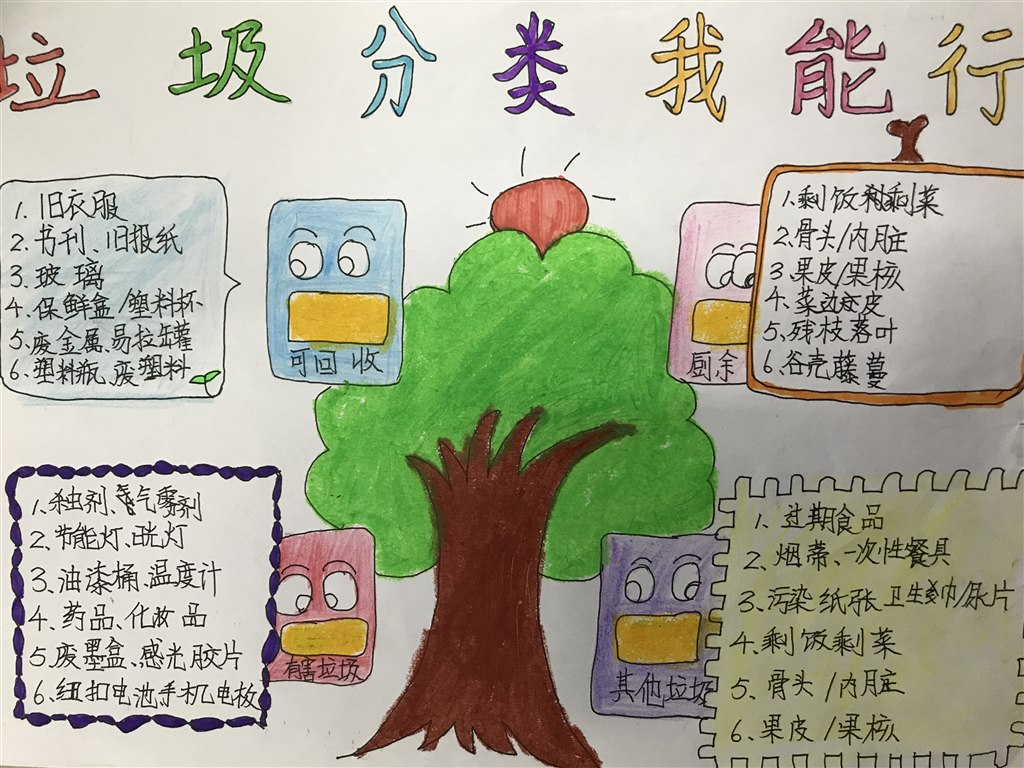 垃圾分类我能行
1. 旧衣服
2. 书刊、旧报纸
3. 玻璃
4. 保鲜盒/塑料杯
5. 废金属、易拉罐
6. 塑料瓶、废塑料
可回收
厨余
1. 剩饭剩菜
2. 骨头/内脏
3. 果皮/果核
4. 菜边皮
5. 残枝落叶
6. 谷壳藤蔓
1. 杀虫剂、空气雾剂
2. 节能灯、灯
3. 油漆桶、温度计
4. 药品、化妆品
5. 废墨盒、感光胶片
6. 纽扣电池手机电板
有害垃圾
其他垃圾
1. 过期食品
2. 烟蒂、一次性餐具
3. 污染纸张、卫生巾/尿片
4. 剩饭剩菜
5. 骨头/内脏
6. 果皮/果核